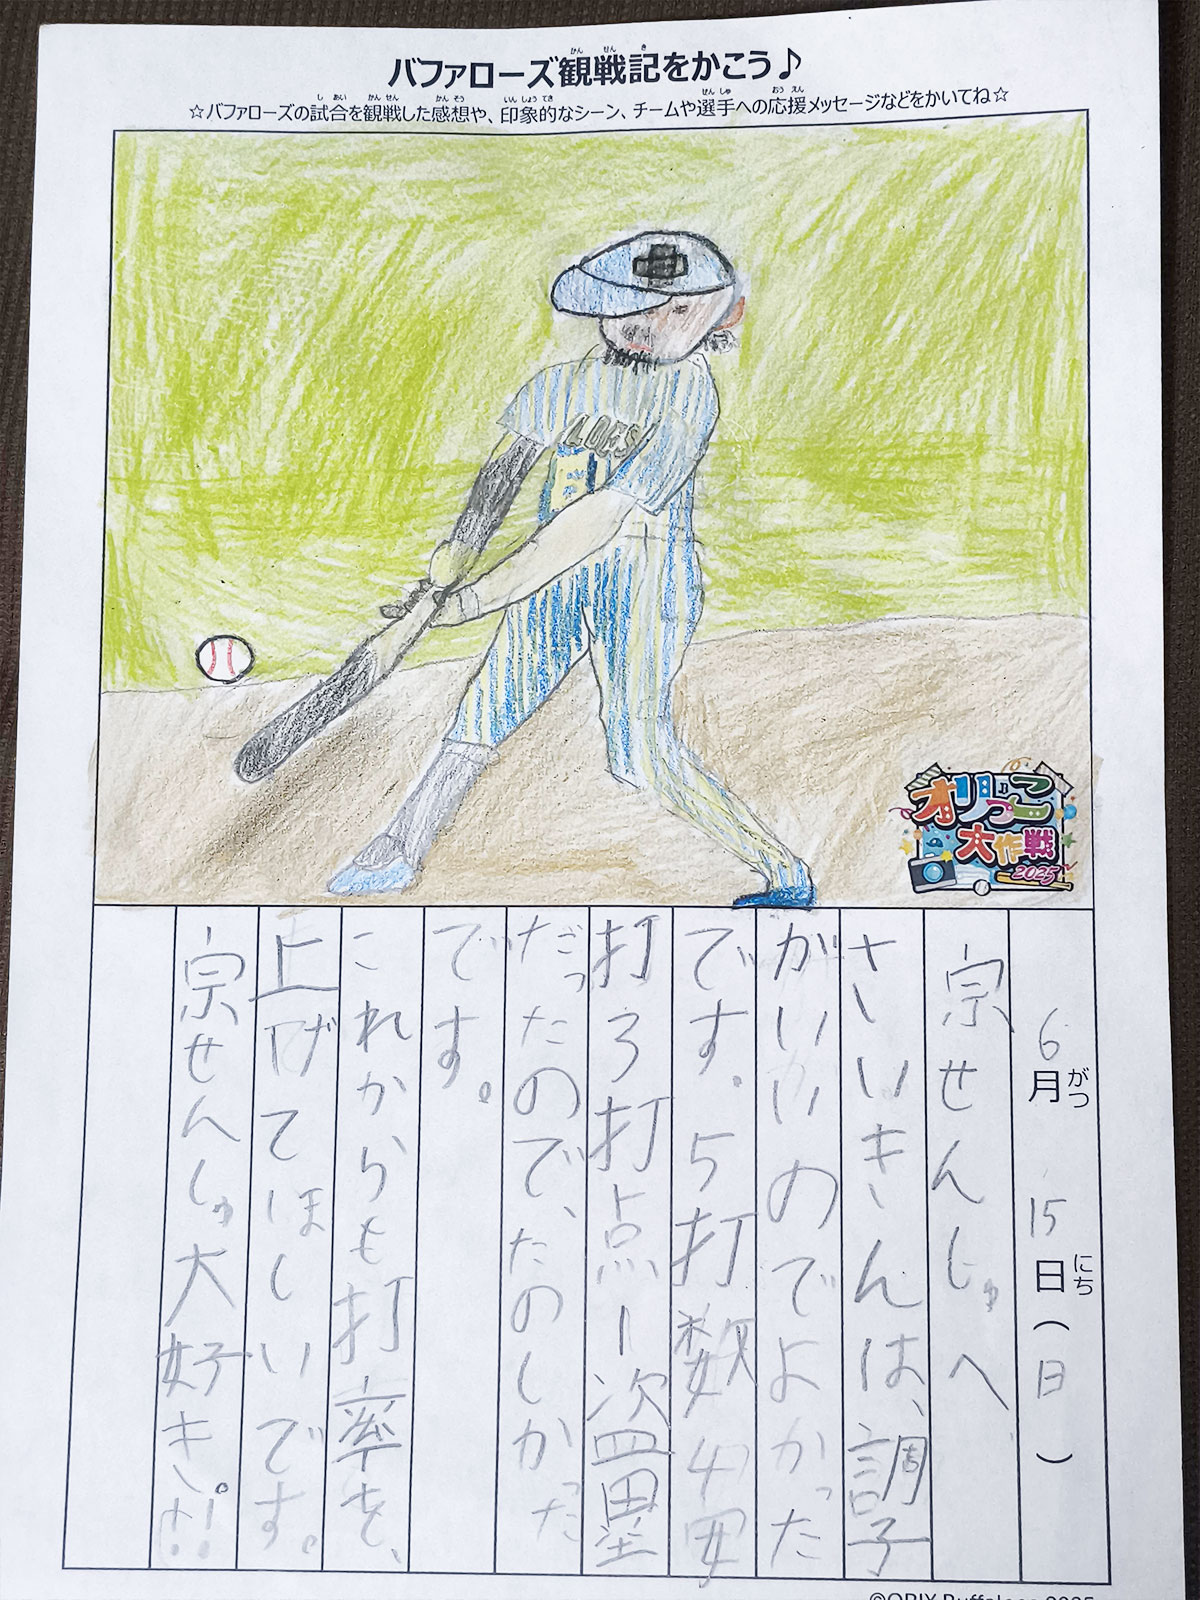 かんせんき
バファローズ観戦記をかこう♪
しあい かんせん かんそう いんしょうてき せんしゅ おうえん
☆バファローズの試合を観戦した感想や、印象的なシーン、チームや選手への応援メッセージなどをかいてね☆
LOES
オリっこ
大作戦
2025
6月15日(日)
がつ にち
宗せんしゅへ
さいきんは、調子
がいいのでよかった
です。5打数4安
打3打点1盗塁
だったので、たのしかった
です。
これからも打率を、
上げてほしいです。
宗せんしゅ大好き!!
©ORIX Buffaloes 2025